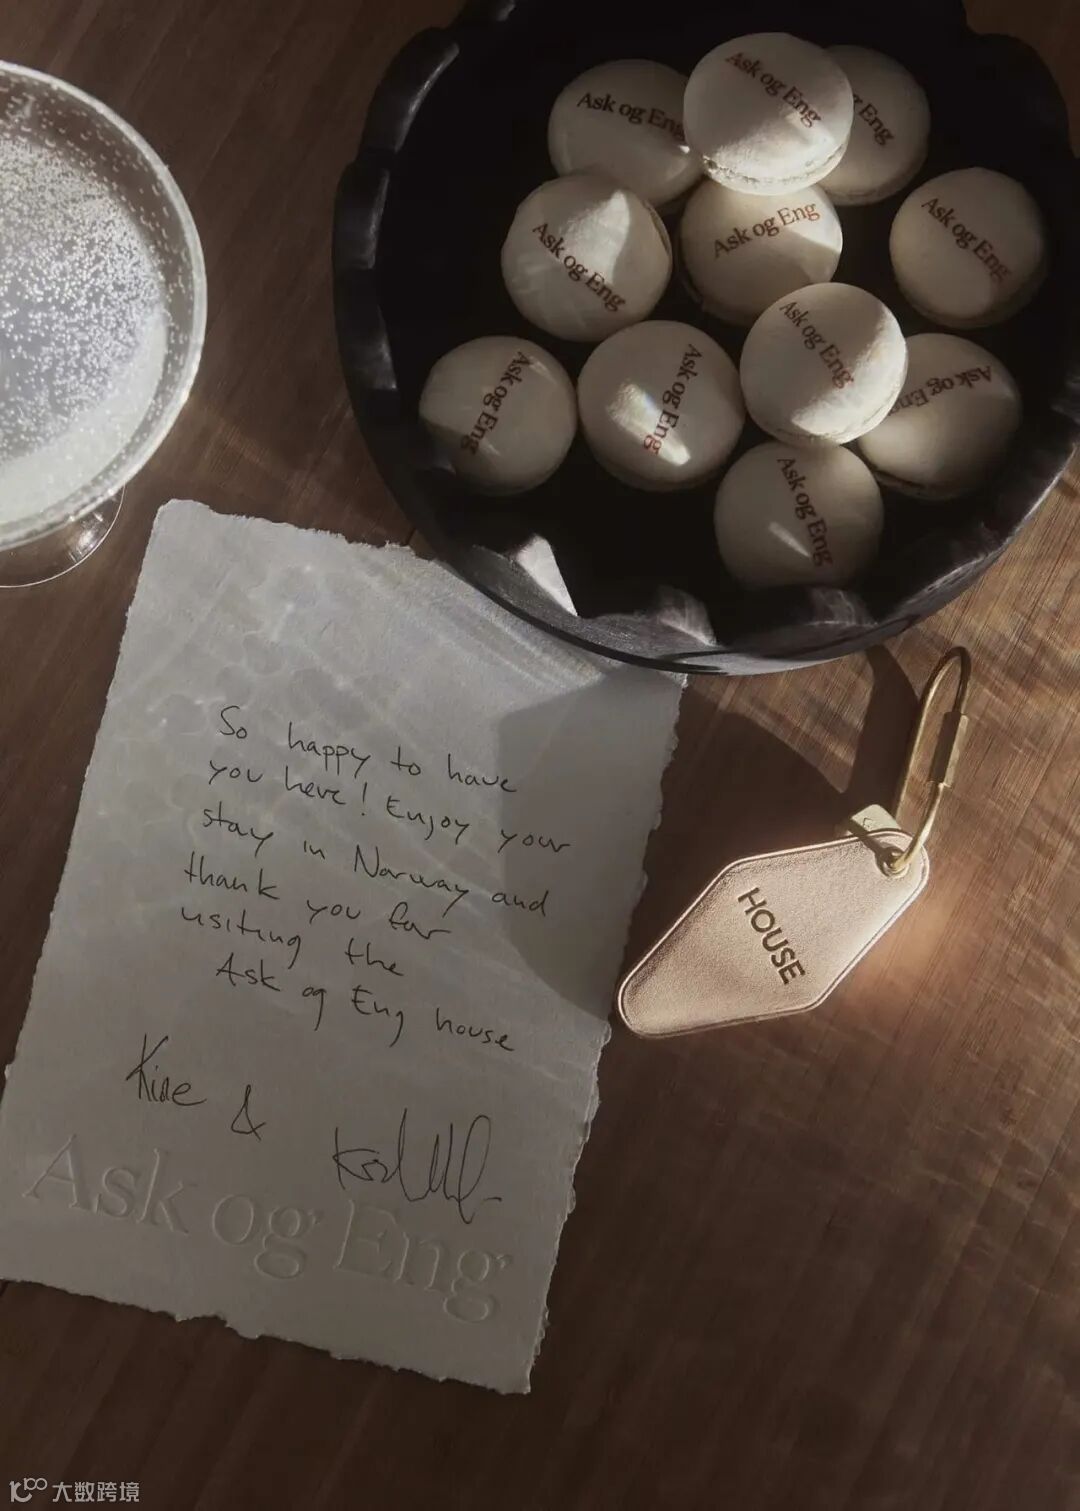 Ask og Eng
Ask og Eng
og Eng
Ask og Eng
Ask og Eng
Ask og Eng
Ask og Eng
Ask og Eng
Ask og Eng
Ask og Eng
Ask og Eng
So happy to have
you here! Enjoy your
stay in Norway and
thank you for
visiting the
Ask og Eng house
Kine &
Ask og Eng
HOUSE
大数跨境